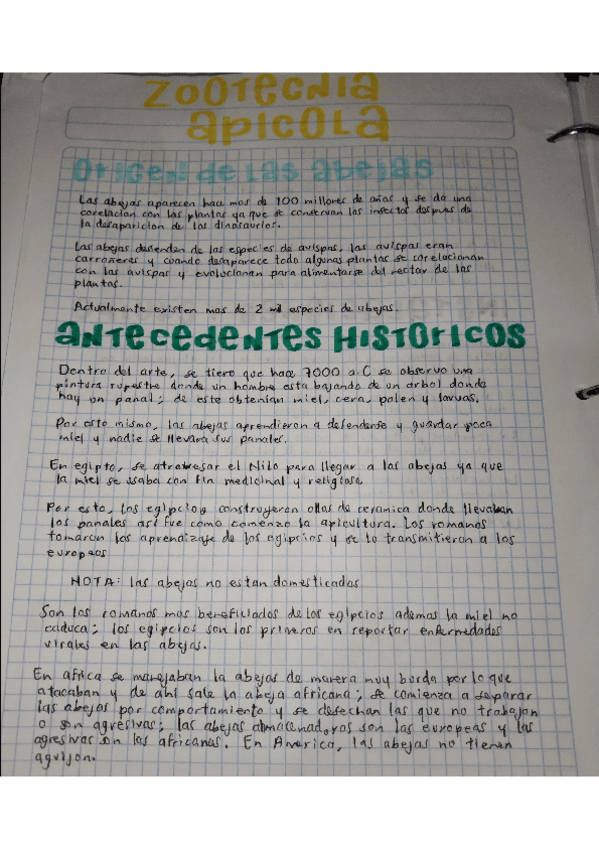 ZOOTECNIA
APICOLA
Origen de las abejas
Las abejas aparecen hace mas de 100 millones de años y se da una
corelacion con las plantas ya que se conservan los insectos despues de
la desaparicion de los dinosaurios.
Las abejas desienden de las especies de avispas, las avispas eran
carroñeras y cuando desaparece todo algunas plantas se corelacionan
con las avispas y evolucionan para alimentarse del nectar de las
plantas.
Actualmente existen mas de 2 mil especies de abejas.
ANTECEDENTES HISTORICOS
Dentro del arte, se tiene que hace 7000 a.C se observo una
pintura rupestre donde un hombre esta bajando de un arbol donde
hay un panal; de este obtenian miel, cera, polen y larvas.
Por esto mismo, las abejas aprendieron a defenderse y guardar poca
miel y nadie se llevara sus panales.
En egipto, se atravesar el Nilo para llegar a las abejas ya que
la miel se usaba con fin medicinal y religioso.
Por esto, los egipcios construyeron ollas de ceramica donde llevaban
los panales asi fue como comenzo la apicultura. Los romanos
tomaron los aprendizaje de los egipcios y se lo transmitieron a los
europeos
NOTA: las abejas no estan domesticadas
Son los romanos mas beneficiados de los egipcios ademas la miel no
caduca; los egipcios son los primeros en reportar enfermedades
virales en las abejas.
En africa se manejaban la abejas de manera muy burda por lo que
atacaban y de ahi sale la abeja africana; se comienza a separar
las abejas por comportamiento y se desechan las que no trabajan
o son agresivas; las abejas almacenadoras son las europeas y las
agresivas son las africanas. En America, las abejas no tienen
aguijon.